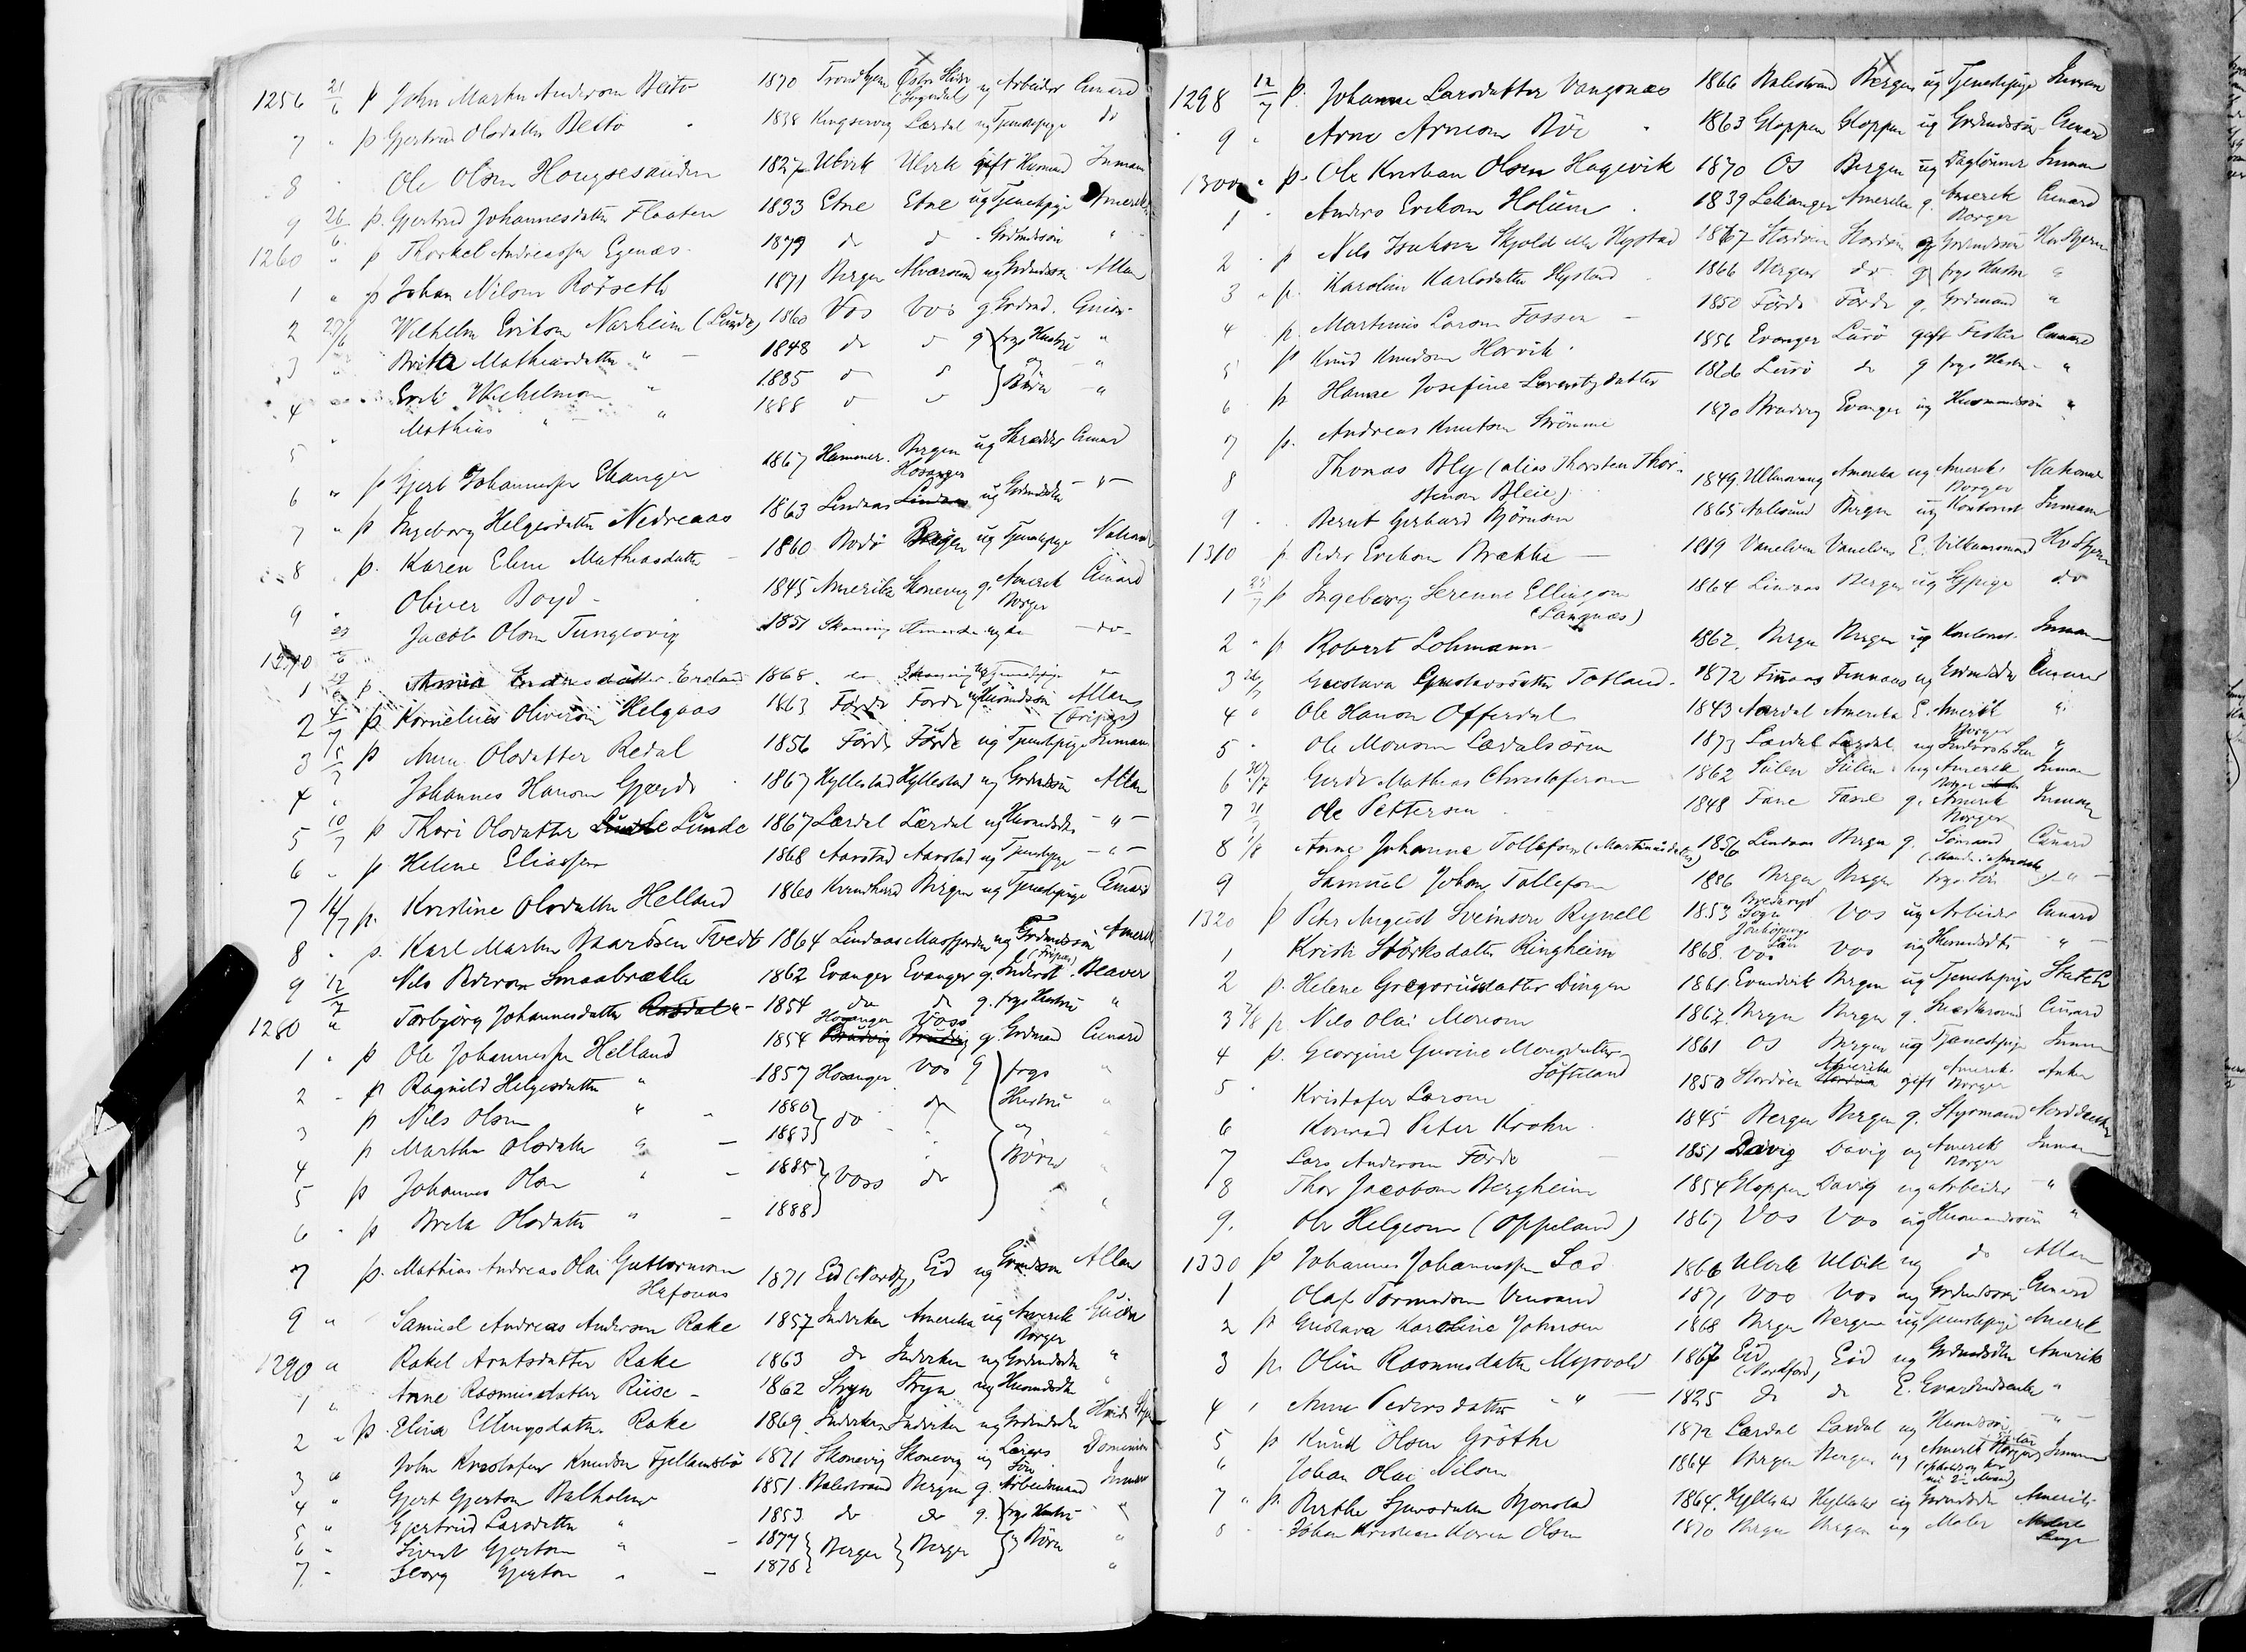 1256 21/6 p John Martin Anderson Beito 1870 Trondhjem Østre Slidre ug Arbeider Cunard
(Sogndal)
7 " p Gjertrud Olsdatter Beito 1838 Kingservig Lærdal ug Tjenestepige do
8 Ole Olsen Hougsesneiden 1827 Ulvik Ulvik gift Husmand Inman
9 26/6 p. Gjertrud Johannesdatter Flaaten 1833 Etne Etne ug Tjenestpige Amerik
1260 " p Thorkel Andreassen Egenæs 1879 do do - Grdmdssøn "
1 " p Johan Nilsen Rørseth 1871 Bergen Alversund ug Grdmdssøn Allan
2 27/6 Vilhelm Erikson Narheim (Lunde) 1860 Vos Vos g Grdmd. Guion
3 Brita Mathiasdatter " 1848 do do g frgs Hustru "
4 Erik Vilhelmson " 1885 do do og Børn "
5 " Mathias " " 1888 do do "
6 " p Gjert Johannessen Changer 1867 Hammer Bergen ug Skrædder Cunard
7 " p Ingeborg Helgesdatter Nedreaas 1863 Lindaas Hosanger ug Grdmdsdtr "
8 p. Karen Eline Mathiasdatter 1860 Bodø Bergen ug Tjenestpige National
9 " Oliver Boyd 1845 Amerika Skonevig g. Amerik Borger Cunard
1270 29/6 Jacob Olsen Tungesvig 1851 Skonevig Amerika ug do -do-
1 29/6 p. Anna Endresdatter Erland 1868 do Skonevig ug Tjenestepige do
2 4/7 p. Kornelius Oliverson Helgaas 1863 Førde Førde ug Husmdssøn Allan
3 5/7 p Anne Olsdatter Redal 1856 Førde Førde ug Tjenestpige Inman
4 " Johannes Hanson Gjerde 1867 Hyllestad Hyllestad ug Grdmdssøn Allan
5 10/7 p Thori Olsdatter Lunde 1867 Lærdal Lærdal ug Husmdsdtr - " -
6 " p. Helene Eliassen 1868 Aarstad Aarstad ug Tjenstpige - " -
7 11/7 p. Kristine Olsdatter Helland 1860 Kvindherred Bergen ug Tjenestepige Cunard
8 " p. Karl Martin Baardsen Tvedt 1864 Lindaas Masfjorden ug Grdmdssøn Amerik
9 12/7 Nils Pederson Smaabrække 1862 Evanger Evanger g. Inderst Beaver
1280 " Torbjørg Johannesdatter 1854 do do g. frgs Hustru "
1 " p Ole Johannessen Helland 1854 Hosanger Voss g. Grdmand Cunard
2 - p Ragnild Helgesdatter " 1857 Hosanger Vos g frgs "
3 p Nils Olsen " 1880 do do Hustru "
4 p Martha Olsdatter " 1883 og "
5 p Johannes Olsen " 1885 Voss do Børn "
6 " p Brita Olsdatter " 1888 "
7 p. Mathias Andreas Olai Guttormson 1871 Eid (Nordfj.) Eid ug Grdmdssøn Allan
Hafsnæs
9 " Samuel Andreas Andersen Rake 1857 Indviken Amerika ug Amerik Borger Guion
1290 " Rakel Arntsdatter Rake 1863 do Indviken ug Grdmdsdtr "
1 " Anne Rasmusdatter Riise - 1862 Stryn Stryn ug Husmdsdtr "
2 " p. Elina Ellingsdatter Rake 1869 Indviken Indviken ug Grdmdsdtr Hvide Stje
3 " John Kristofer Knudsen Fjellandsbø 1871 Skonevig Skonevig ug Lærers Søn Dominion
4 " Gjert Gjertson Balholm 1851 Balestrand Bergen g. Arbeidsmand Inman
5 " Gjertrud Larsdatter " 1853 do do g. frgs Hustru "
6 " Sivert Gjertson " - 1877 Bergen Bergen og Børn "
7 - Georg Gjertson " - 1878 "
1298 12/7 p. Johanne Larsdatter Vangsnæs 1866 Balestrand Bergen ug Tjenestepige Inman
9 " Arne Arneson Bøe 1863 Gloppen Gloppen ug Grdmdssøn Cunard
1300 " p. Ole Kristian Olsen Hagevik 1870 Os Bergen ug Daglønner Inman
1 " Anders Erikson Holum 1839 Lekanger Amerika g. Amerik Borger Cunard
2 " p Nils Isakson Skjold eller Hystad 1867 Stordøen Stordøen g Grdmdssøn Hv Stjerne
3 " p. Karolina Karlsdatter Hystad 1866 Bergen do g frgs Hustru "
4 p. Martinus Larson Fossen - 1850 Førde Førde g. Grdmand "
5 p Knud Knudson Horvik 1856 Evanger Lurø gift Fisker Cunard
6 p Hanse Josefine Lorentzdatter 1866 Lurø do g frgs Hustru "
7 p. Andreas Knutson Strømme 1870 Bruvig Evanger ug Husmandssøn "
8 Thomas Bly (alias Thorsten Thor-
stenson Bleie) 1849 Ullensvang Amerika ug Amerik. Borger National
9 " Bernt Gerhard Bjørnsen 1865 Aalesund Bergen ug Kontorist Inman
1310 p Peder Erikson Brække - 1819 Vanelven Vanelven E. Vilkaarsmand Hv Stjerne
1 23/7 p Ingeborg Serenne Ellingson 1864 Lindaas Bergen ug Sypige do
(Langnæs)
2 " p Robert Lohmann 1862 Bergen Bergen ug Kontorist Inman
3 26/7 Gustava Gustavsdatter Totland 1872 Finnaas Finnaas ug Grdmdsdtr Cunard
4 " Ole Hanson Offerdal 1843 Aardal Amerika E. Amerik Borger "
5 " Ole Monson Lærdalsøren 1873 Lærdal Lærdal ug Inderst Søn "
6 30/7 Gerdt Mathias Christoferson 1862 Sulen Sulen ug Amerik Borger Inman
7 31/7 Ole Pettersen 1848 Fane Fane g. Amerik Borger Inman
8 1/8 Anne Johanne Tollefsen (Martinusdatter) 1856 Lindaas Bergen g. Sømand Cunard
9 Samuel Johan Tollefsen 1886 Bergen Bergen frgs Søn - " -
1320 p Peter August Sveinson Rynell 1853 Bredaryd Sogn Jönköpings Län Vos ug Arbeider Cunard
1 Kristi Størksdatter Ringheim 1868 Vos Vos ug Husmdsdtr " -
2 p. Helene Gregoriusdatter Dingen 1861 Evindvik Bergen ug Tjenestepige State L
3 7/8 p. Nils Olai Monson 1862 Bergen Bergen g. Cunard
4 p. Georgine Gurine Monsdatter 1861 Os Bergen ug Tjenestepige Inman
Søfteland
5 Kristofer Larson 1850 Stordøen Amerika gift Amerik. Borger Anker
6 Konrad Peter Krohn 1845 Bergen Bergen g. Styrmand Norddeutsch
7 Lars Anderson Førde - 1851 Davig Davig ug Amerik Borger Inman
8 Thor Jacobson Bergheim 1854 Gloppen Davig ug Arbeider "
9. Ole Helgeson (Oppeland) 1867 Vos Vos ug Husmandssøn "
1330 p Johannes Johannessen Lad 1866 Ulvik Ulvik ug do Allan
1 Olaf Tormodson 1871 Vos Vos ug Grdmdssøn Cunard
2 p Gustava Karoline Johnsen 1868 Bergen Bergen ug Tjenestepige Amerik
3 p. Olina Rasmusdatter Myrvold 1867 Eid (Nordfjord) Eid ug Grdmdsdtr Amerik
4 " Anne Pedersdatter " - 1825 do do E. "
5 p Knud Olsen Grøthe 1872 Lærdal Lærdal ug Husmdssøn - " -
6 Johan Olai Nilsen 1864 Bergen Bergen ug Amerik Borger Inman
7 " p. Berthe Sjursdatter Bjorstad 1864 Hyllestad Hyllestad ug Grdmdsdtr Amerik
8 Johan Kristian Olsen 1870 Bergen Bergen ug Maler